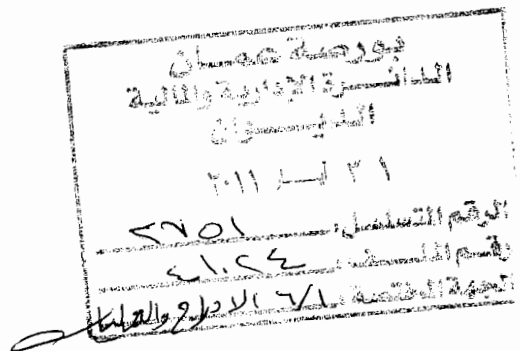 بورصة عمان
الدائرة الإدارية والمالية
الديوان
٣١ ٢٠١١
الرقم المتسلسل: ٢٧٥١
رقم الملف: ٤١٠٢٤
الجهة المختصة: ٦/١ الادراج والعمليات